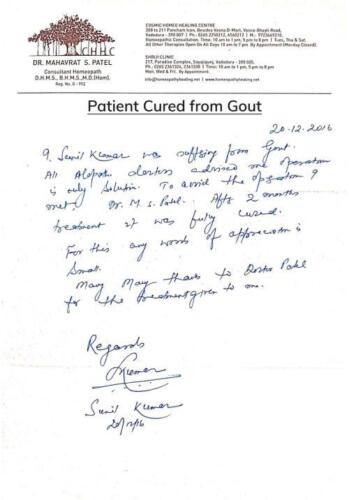 C H H C
DR. MAHAVRAT S. PATEL
Consultant Homeopath
D.H.M.S., B.H.M.S.,M.D.(Hom).
Reg. No. G - 992
COSMIC HOMEO HEALING CENTRE
Homeopathic Consultation. Time: 10 am to 1 pm, 5 pm to 8 pm / Tues, Thu & Sat.
All Other Therapies Open On All Days 10 am to 7 pm By Appointment (Monday Closed).
SHRIJI CLINIC
217, Paradise Complex, Sayajigunj, Vadodara - 390 005.
Mon, Wed & Fri. By Appointment.
Patient Cured from Gout
20-12-2016
I, Sunil Kumar was suffering from Gout.
All Alopath doctors advised me operation
is only Solution. To avoid the operation I
met Dr. M.S. Patel. After 2 months
treatment it was fully cured.
For this any words of appreciation is
Small.
Many Many thanks to Doctor Patel
for the treatment given to me.
Regards
Kumar
Sunil Kumar
20/12/16